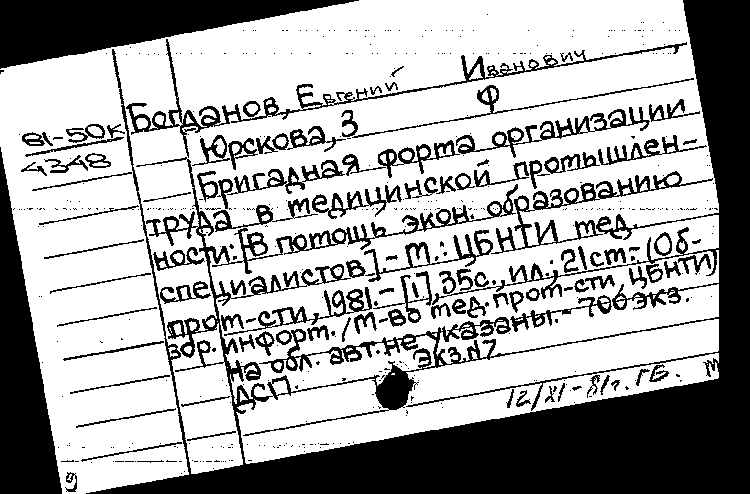 Богданов, Евгений Иванович
81-50к
4348
Юрскова, З Ф
Бригадная форма организации
труда в медицинской промышлен-
ности: [В помощь экон. образованию
специалистов]. - М.: ЦБНТИ мед.
пром-сти, 1981. - [1], 35с., ил.; 21см. - (Об-
зор. информ. / М-во мед. пром-сти, ЦБНТИ)
На обл. авт. не указаны. - 700 экз.
ДСП. Экз. №7
12/XI-81г. ГБ. М
9